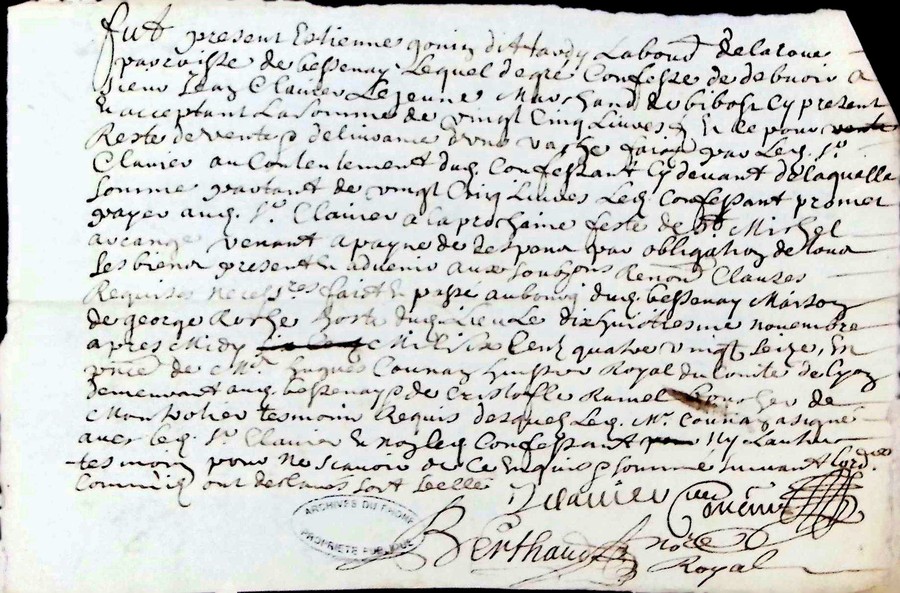 fut present Estienne gonin dit Hardy Labour de la roue
parroisse de bessenay Lequel de gré Confesse de debvoir a
sieur Jean Clavier Le jeune Marchand de bibost Cy present
Et acceptant La somme de vingt Cinq Livres Et Ce pour vente
Reste de vente & delivrance d'une vache faite par Led. Sr
Clavier au Contentement dud. Confessant Cy devant de laquelle
somme partant de vingt Cinq Livres Led Confessant promet
payer aud. Sr Clavier a la prochaine feste de St Michel
arcange venant a payne de respons par obligation de tous
Ses biens present Et advenir aux soubzons Renon Clauses
Requises necessres fait Et passé au bourg dud. bessenay Maison
de george Roche hoste dud. Lieu Le dixhuictiesme novembre
apres Midy Mil six Cent quatre vingt seize, En
pnce de Mre hugues Counay huissier Royal du Comté de Lyon
demeurant aud. bessenay & de Cristofle Ramel boucher de
Montrotier tesmoins Requis desquels Led. Mr. Counay a signé
avec led. Sr Clavier Et non led Confessant Ny L'autre
tesmoin pour ne scavoir de Ce Enquis & sommé suivant L'ord.
Commis ont declarés soit scellé
J Clavier
Berthaud nore
Royal
ARCHIVES DU RHONE
PROPRIETE PUBLIQUE